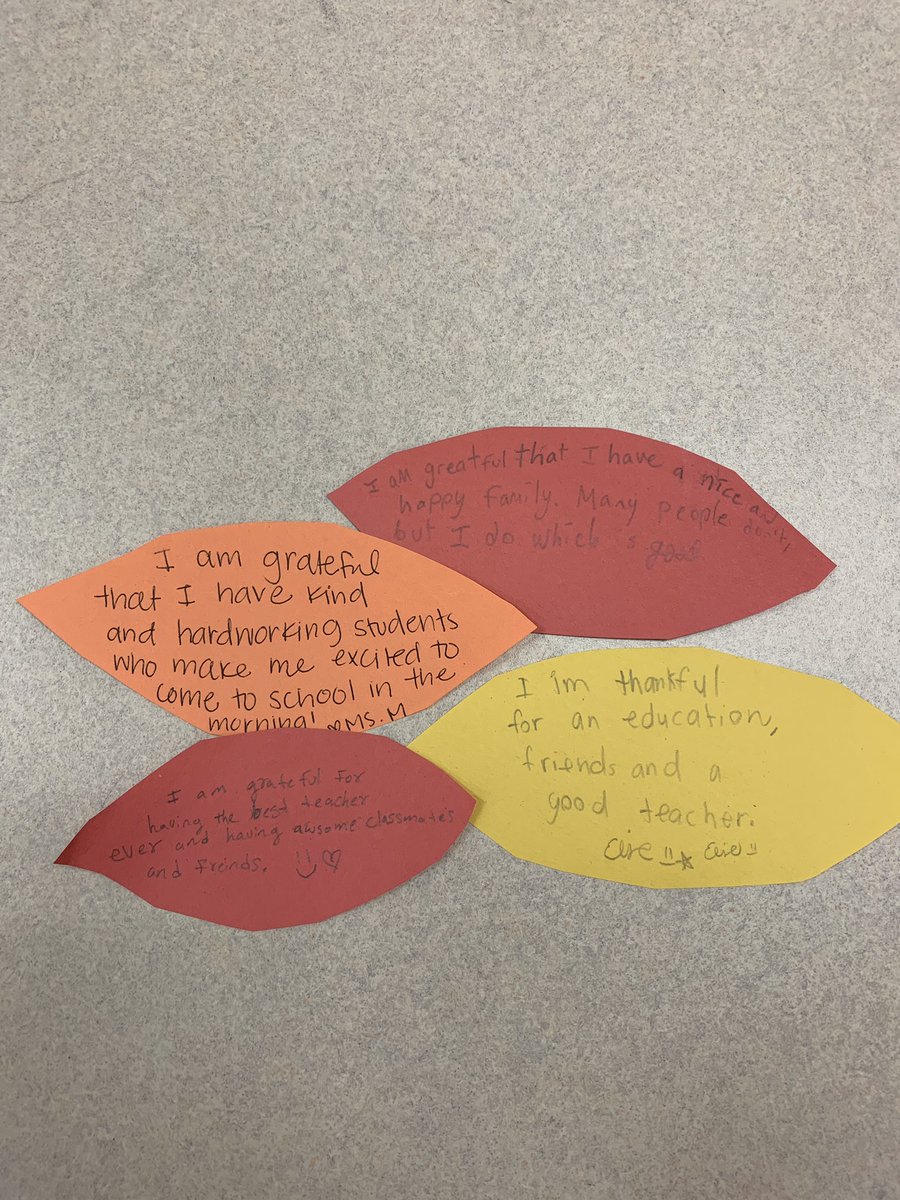 I am greatful that I have a nice an
happy family. Many people don't,
but I do which is good
I am grateful
that I have kind
and hardworking students
who make me excited to
come to school in the
morning! ♡Ms. M
I im thankful
for an education,
friends and a
good teacher.
I am grateful for
having the best teacher
ever and having awsome classmates
and freinds.